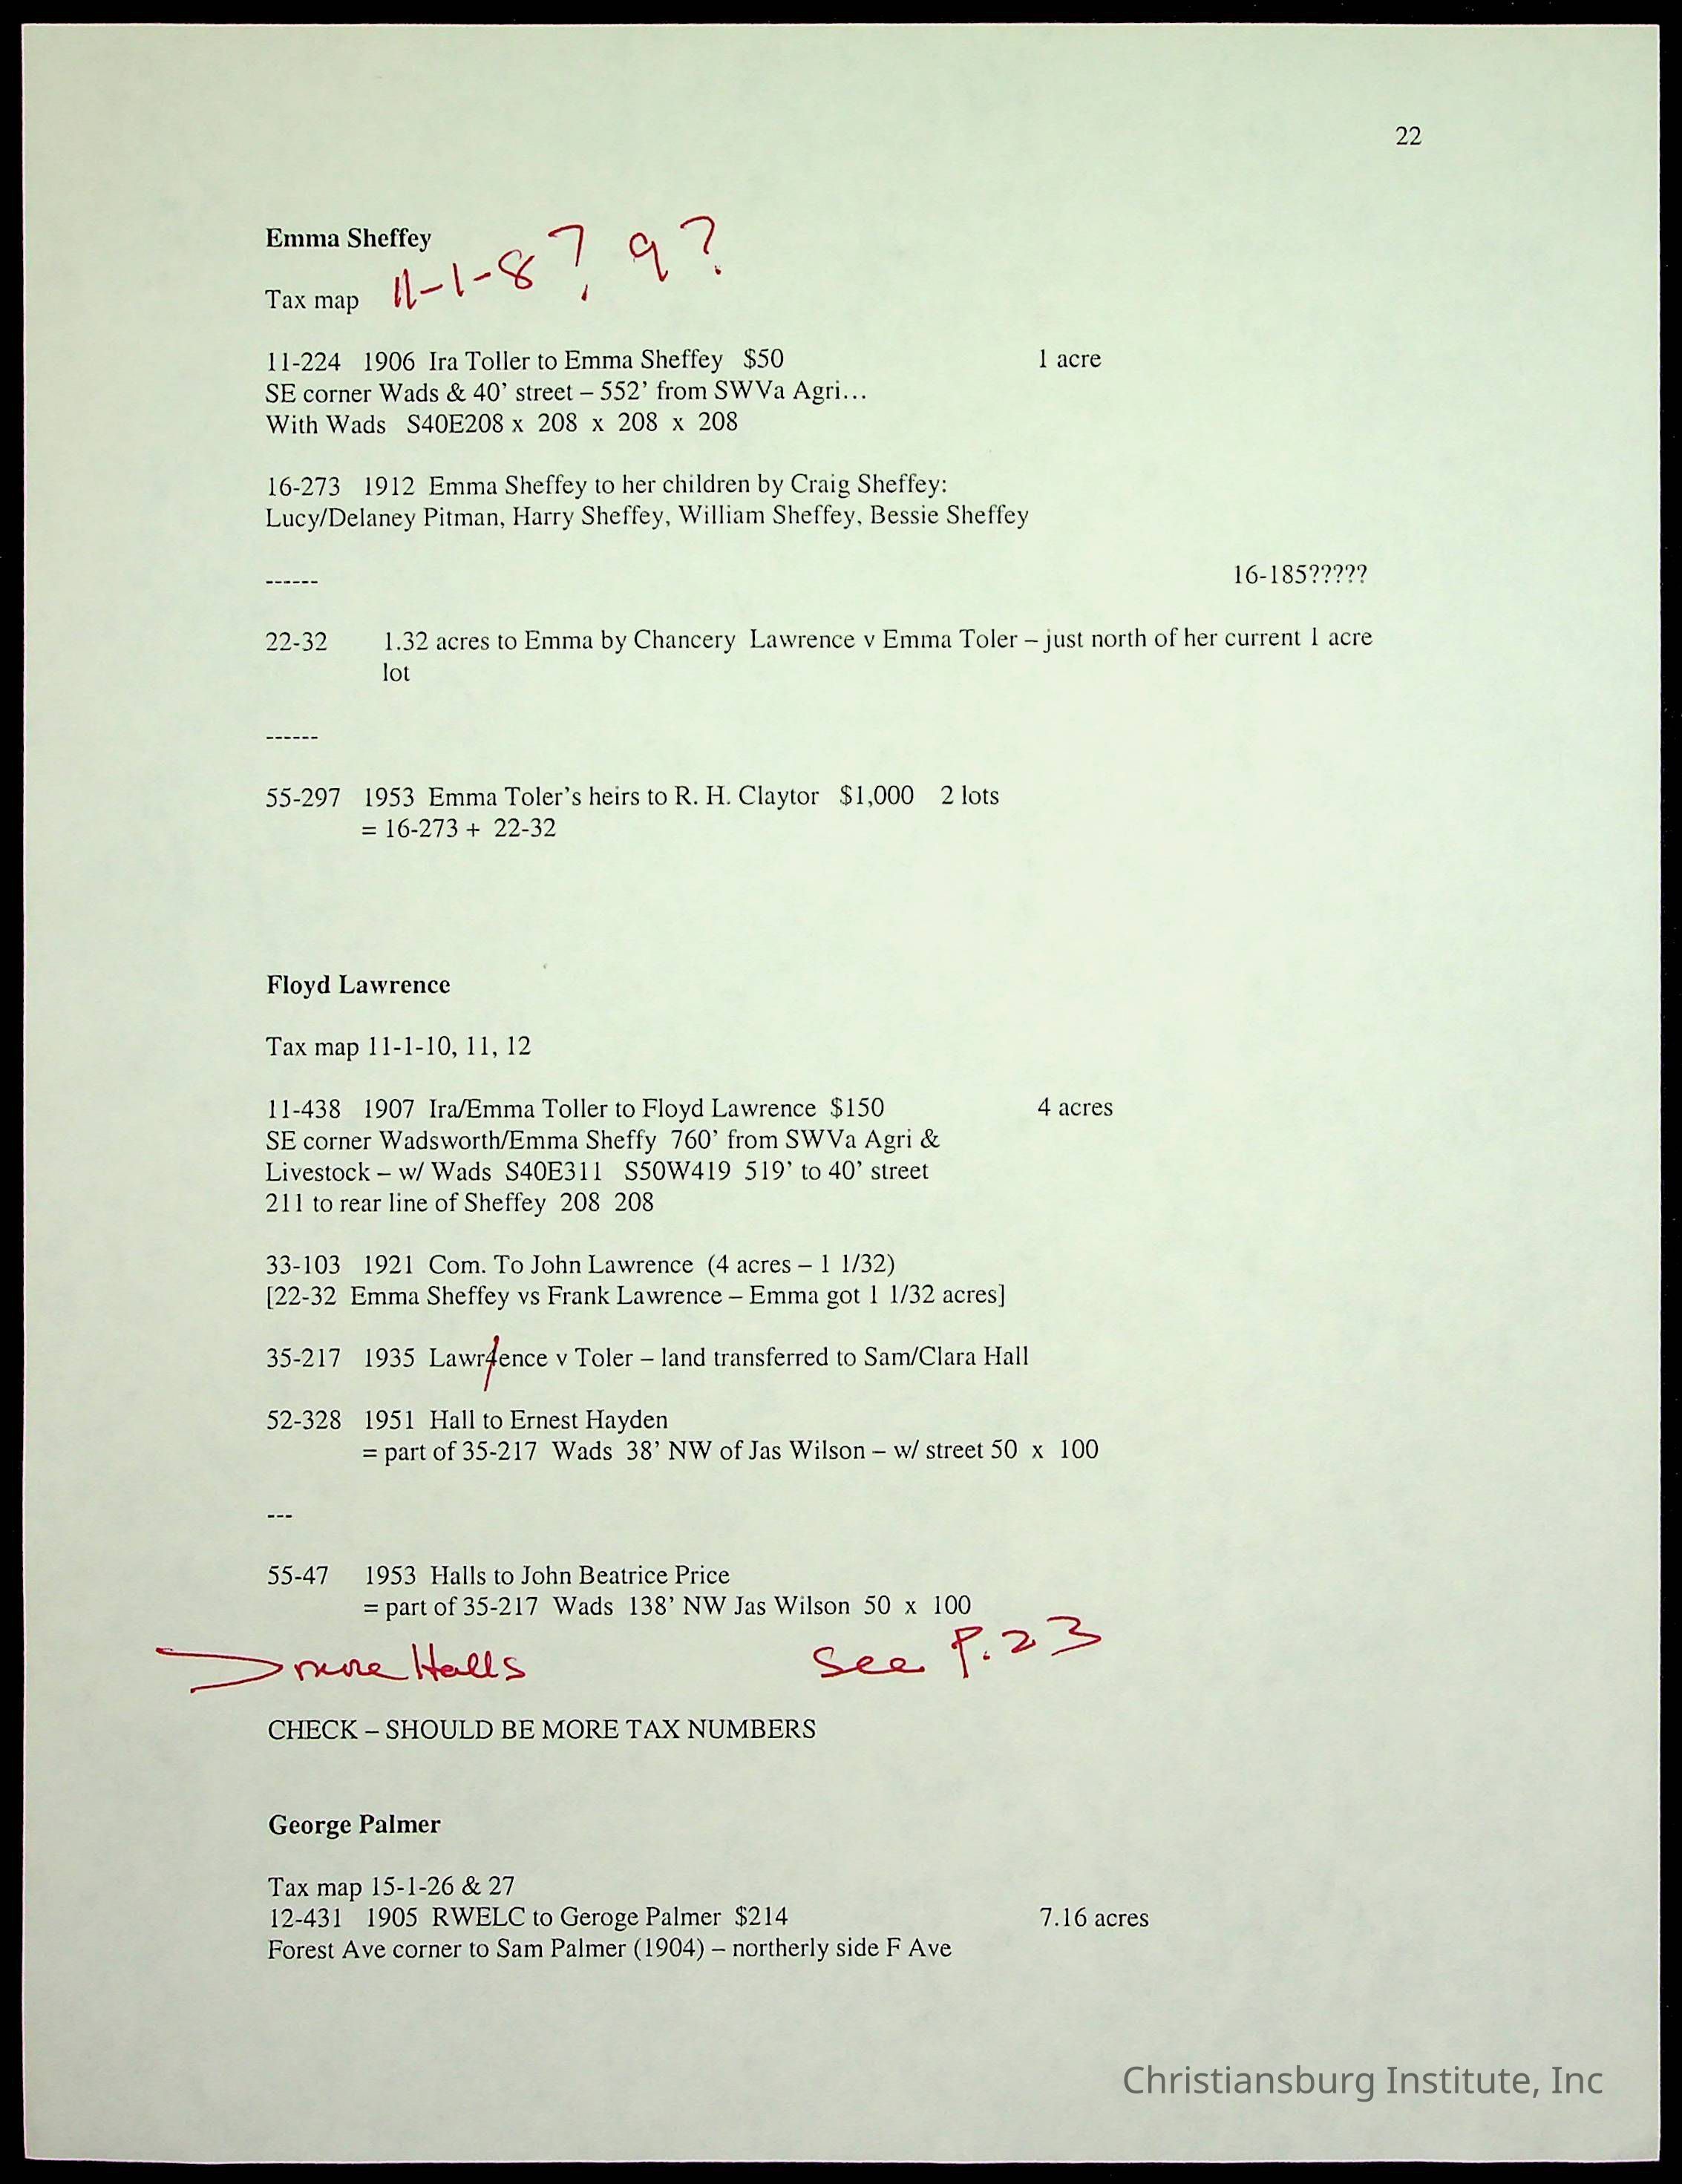 22
Emma Sheffey
Tax map 11-1-8?, 9?
11-224 1906 Ira Toller to Emma Sheffey $50 1 acre
SE corner Wads & 40’ street – 552’ from SWVa Agri…
With Wads S40E208 x 208 x 208 x 208
16-273 1912 Emma Sheffey to her children by Craig Sheffey:
Lucy/Delaney Pitman, Harry Sheffey, William Sheffey, Bessie Sheffey
------ 16-185?????
22-32 1.32 acres to Emma by Chancery Lawrence v Emma Toler – just north of her current 1 acre
lot
------
55-297 1953 Emma Toler’s heirs to R. H. Claytor $1,000 2 lots
= 16-273 + 22-32
Floyd Lawrence
Tax map 11-1-10, 11, 12
11-438 1907 Ira/Emma Toller to Floyd Lawrence $150 4 acres
SE corner Wadsworth/Emma Sheffy 760’ from SWVa Agri &
Livestock – w/ Wads S40E311 S50W419 519’ to 40’ street
211 to rear line of Sheffey 208 208
33-103 1921 Com. To John Lawrence (4 acres – 1 1/32)
[22-32 Emma Sheffey vs Frank Lawrence – Emma got 1 1/32 acres]
35-217 1935 Lawr4ence v Toler – land transferred to Sam/Clara Hall
52-328 1951 Hall to Ernest Hayden
= part of 35-217 Wads 38’ NW of Jas Wilson – w/ street 50 x 100
---
55-47 1953 Halls to John Beatrice Price
= part of 35-217 Wads 138’ NW Jas Wilson 50 x 100
more Halls See P. 23
CHECK – SHOULD BE MORE TAX NUMBERS
George Palmer
Tax map 15-1-26 & 27
12-431 1905 RWELC to Geroge Palmer $214 7.16 acres
Forest Ave corner to Sam Palmer (1904) – northerly side F Ave
Christiansburg Institute, Inc